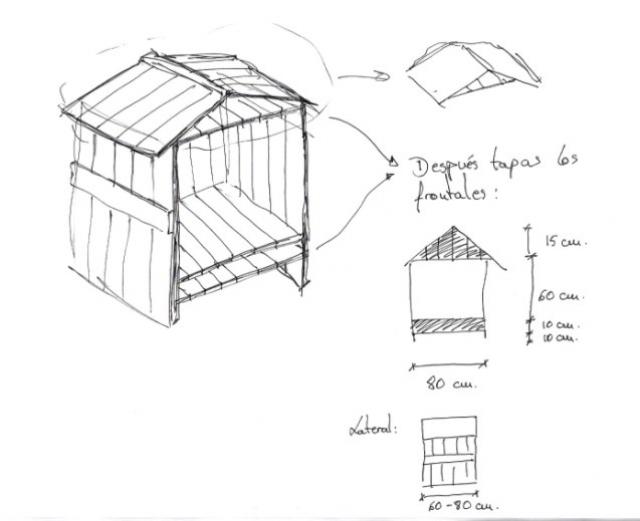 Después tapas los
frontales:
15 cm.
60 cm.
10 cm.
10 cm.
80 cm.
Lateral:
60-80 cm.